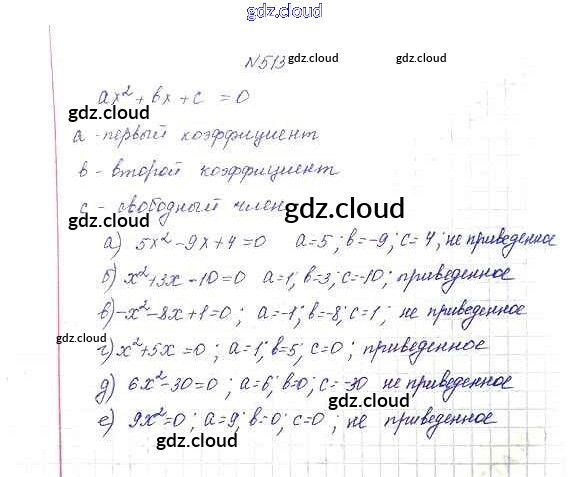 gdz.cloud
№513
gdz.cloud
gdz.cloud
ax² + bx + c = 0
gdz.cloud
a - первый коэффициент
b - второй коэффициент
c - свободный член
gdz.cloud
gdz.cloud
а) 5x² - 9x + 4 = 0 a = 5; b = -9; c = 4; не приведенное
б) x² + 3x - 10 = 0 a = 1; b = 3; c = -10; приведенное
в) -x² - 8x + 1 = 0; a = -1; b = -8; c = 1; не приведенное
gdz.cloud
gdz.cloud
г) x² + 5x = 0; a = 1; b = 5; c = 0; приведенное
д) 6x² - 30 = 0; a = 6; b = 0; c = -30 не приведенное
е) 9x² = 0; a = 9; b = 0; c = 0; не приведенное
gdz.cloud
gdz.cloud